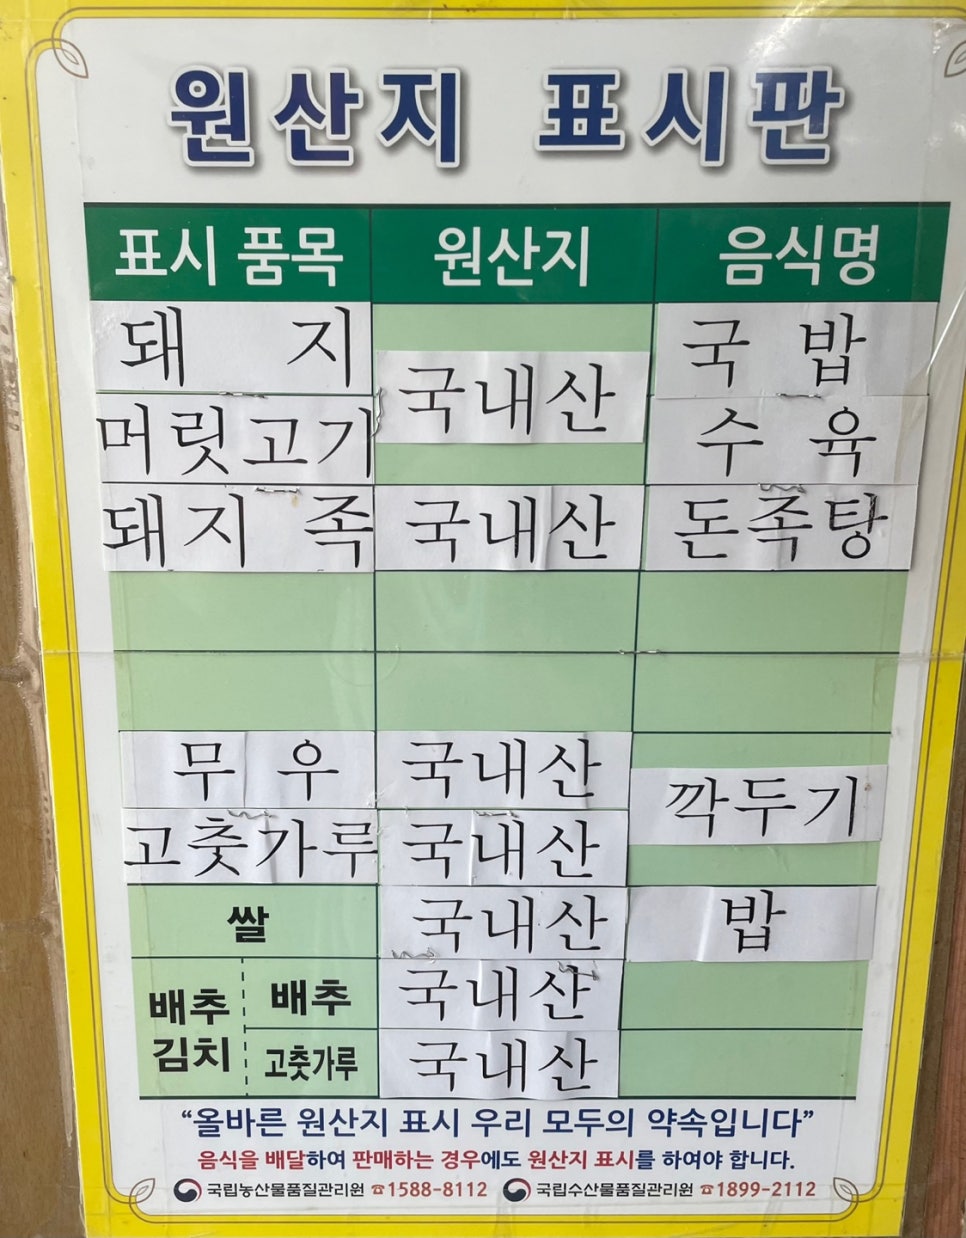 원산지 표시판
표시 품목 원산지 음식명
돼 지 국 밥
국내산
머릿고기 수 육
돼지 족 국내산 돈족탕
무 우 국내산
깍두기
고춧가루 국내산
쌀 국내산 밥
배추 김치 배추 국내산
고춧가루 국내산
“올바른 원산지 표시 우리 모두의 약속입니다”
음식을 배달하여 판매하는 경우에도 원산지 표시를 하여야 합니다.
국립농산물품질관리원 ☎1588-8112 국립수산물품질관리원 ☎1899-2112